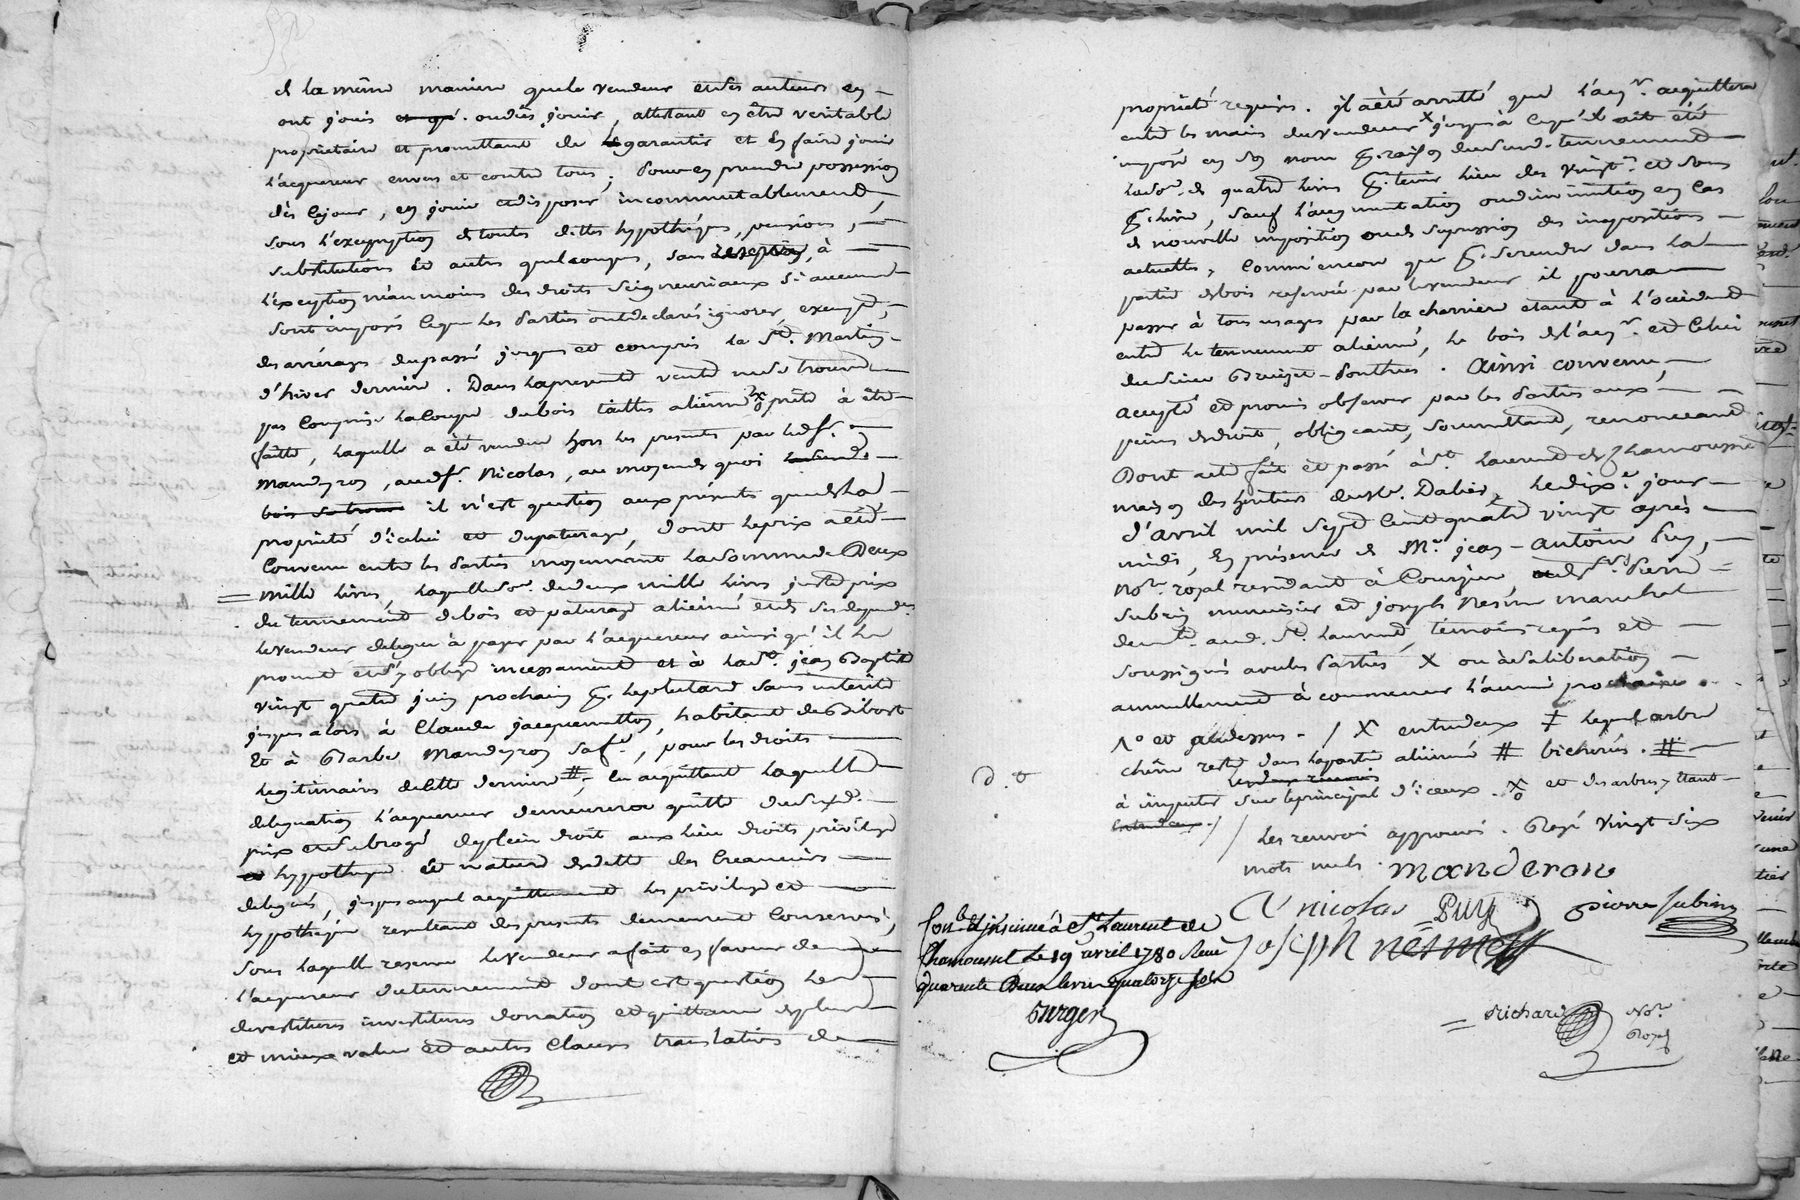 de la même maniere que le vendeur et ses auteurs en
ont jouis ou dûs jouir, attestant en être veritable
proprietaire et promettant de garantir et en faire jouir
l'acquereur envers et contre tous; pour en prendre possession
dès ce jour, en jouir et disposer incommutablement,
sous l'exemption de toutes dittes hypothéques, pensions,
substitutions et autres quelconques, sans reserve, à
l'exception néanmoins des droits seigneuriaux si aucuns
sont imposés ce que les parties ont declarés ignorer, exempt,
des arrérages du passé jusques et compris la St. Martin
d'hiver dernier. Dans la presente vente ne se trouve
pas comprise la coupe du bois taillis aliené prete à être
faitte, laquelle a été vendue hors les presentes par led. sr.
Manderon, aud. sr. Nicolas, au moyen de quoi
il n'est question aux présentes que de la
propriété d'icelui et du paturage, dont le prix a été
convenu entre les parties moyennant la somme de Deux
mille livres, laquelle so. de deux mille livres juste prix
du tennement de bois et paturage aliené et de ses dependces
le vendeur delegue à payer par l'acquereur ainsi qu'il le
promet et s'y oblige incessamment et à la st. jean Baptiste
vingt quatre juin prochain p. le plutard sans intérêts
jusques alors à Claude jacquemetton, habitant de Bibost
Et à Barbe Manderon sa fe., pour les droits
legitimaires de cette derniere #, en acquittant laquelle
delegation l'acquereur demeurera quitte dud. prix
et subrogé de plein droit aux lieu droits privilege
hypotheque et nature de dette des creanciers
delegués, jusques auquel acquittement les privilege et
hypotheque resultant des presentes demeurent conservés;
sous laquelle reserve le vendeur a fait en faveur de
l'acquereur du tennement dont est question les
devestitures investitures donation et quittance de plus
et mieux value et autres clauses translatives de
propriété requises. il a été arretté que l'acqr. acquittera
entre les mains du vendeur X jusqu'à ce qu'il ait été
imposé en son nom p. raison dud. tennement
la so. de quatre livres p. tenir lieu des vingt. et sous
p. livre, sauf l'augmentation ou diminution en cas
de nouvelle imposition ou de supression des impositions
actuelles, comm'encore que p. se rendre dans la
partie de bois reservée par le vendeur il pourra
passer à tous usages par la charriere etant à l'occident
entre le tennement aliené, le bois de l'acqr. et celui
du sieur Bruizet-Ponthus. Ainsi convenu,
accepté et promis observer par les parties aux
peines de droit, obligeant, soumettant, renonceant
Dont acte fait et passé à St. Laurent de Chamousset
maison des heritiers du sr. Dabier, le dixe. jour
d'avril mil sept cent quatre vingt après
midi, En présence de Mr. jean-antoine Puy,
Nore. royal residant à Courzieu, et de sr. Pierre
Subrin menuisier et joseph Nesme marechal
demt. aud. St. Laurent, témoins requis et
soussignés avec les parties X ou à sa liberation
annuellement à commencer l'année prochaine
1° et au dessus. / X entre deux ‡ lequel arbre
chêne reste dans la partie alienée # bicherées. #
à imputer sur le principal d'iceux. X et des arbres y etant
Les renvois approuvés. Rayé vingt six
mots nuls. manderon
C nicolas Puy pierre subrin
Joseph nésme
d. t
Con.lé & insinué à St Laurent de
Chamousset le 19 avril 1780 Reçu
quarente Deux livres quatorze sols
Burger
Richard Nore.
Royal